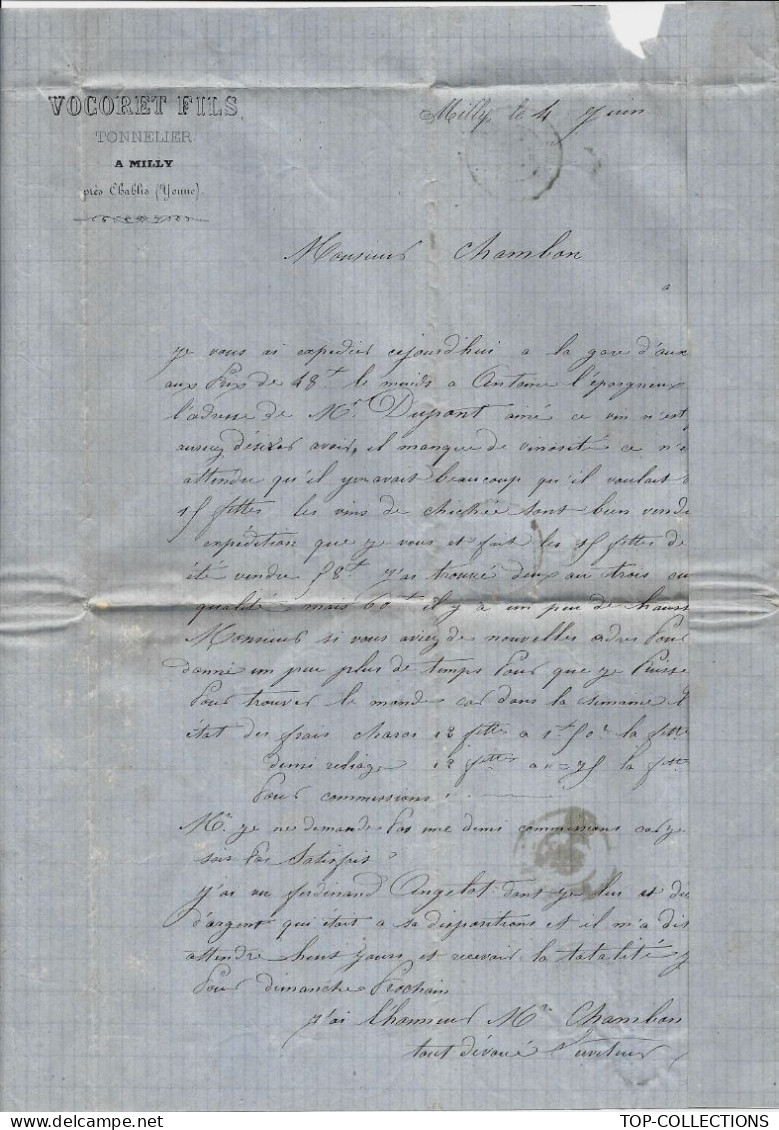 VOCORET FILS
TONNELIER
A MILLY
près Chablis (Yonne)
Milly le 4 Juin
Monsieur Chambon
a
je vous ai expedier cejourd'hui a la gare
aux Prix de 48 f le muids a Antoine
l'adresse de Mr Dupont ainé ce vin n'est
désirer avoir, il manque de vinosité ce
attendre qu'il y en avait beaucoup qu'il voulait
fttes les vins de chichée sont bien
expédition que je vous et fait les fttes de
été vendre 58 f j'ai trouvé deux ou trois
qualité mais 60 f il y a un peu de
Monsieur si vous aviez de nouvelles Pour
donné un peu plus de temps Pour que je Puisse
Pour trouver le monde car dans la semaine
état des frais 12 fttes a 1 f 50 c la ftte
demi reliage 12 fttes a 75 la ftte
Pour commissions
Mr. je ne demande Pas une demi commissions car je
Pas Satisfais
j'ai vu ferdinand Angelot dont je lui et
d'argent qui était a sa dispositions et il m'a dit
attendre huit jours et recevoir la totalité
Pour dimanche Prochain
j'ai l'honneur Mr Chambon
tout dévoué Serviteur
TOP-COLLECTIONS